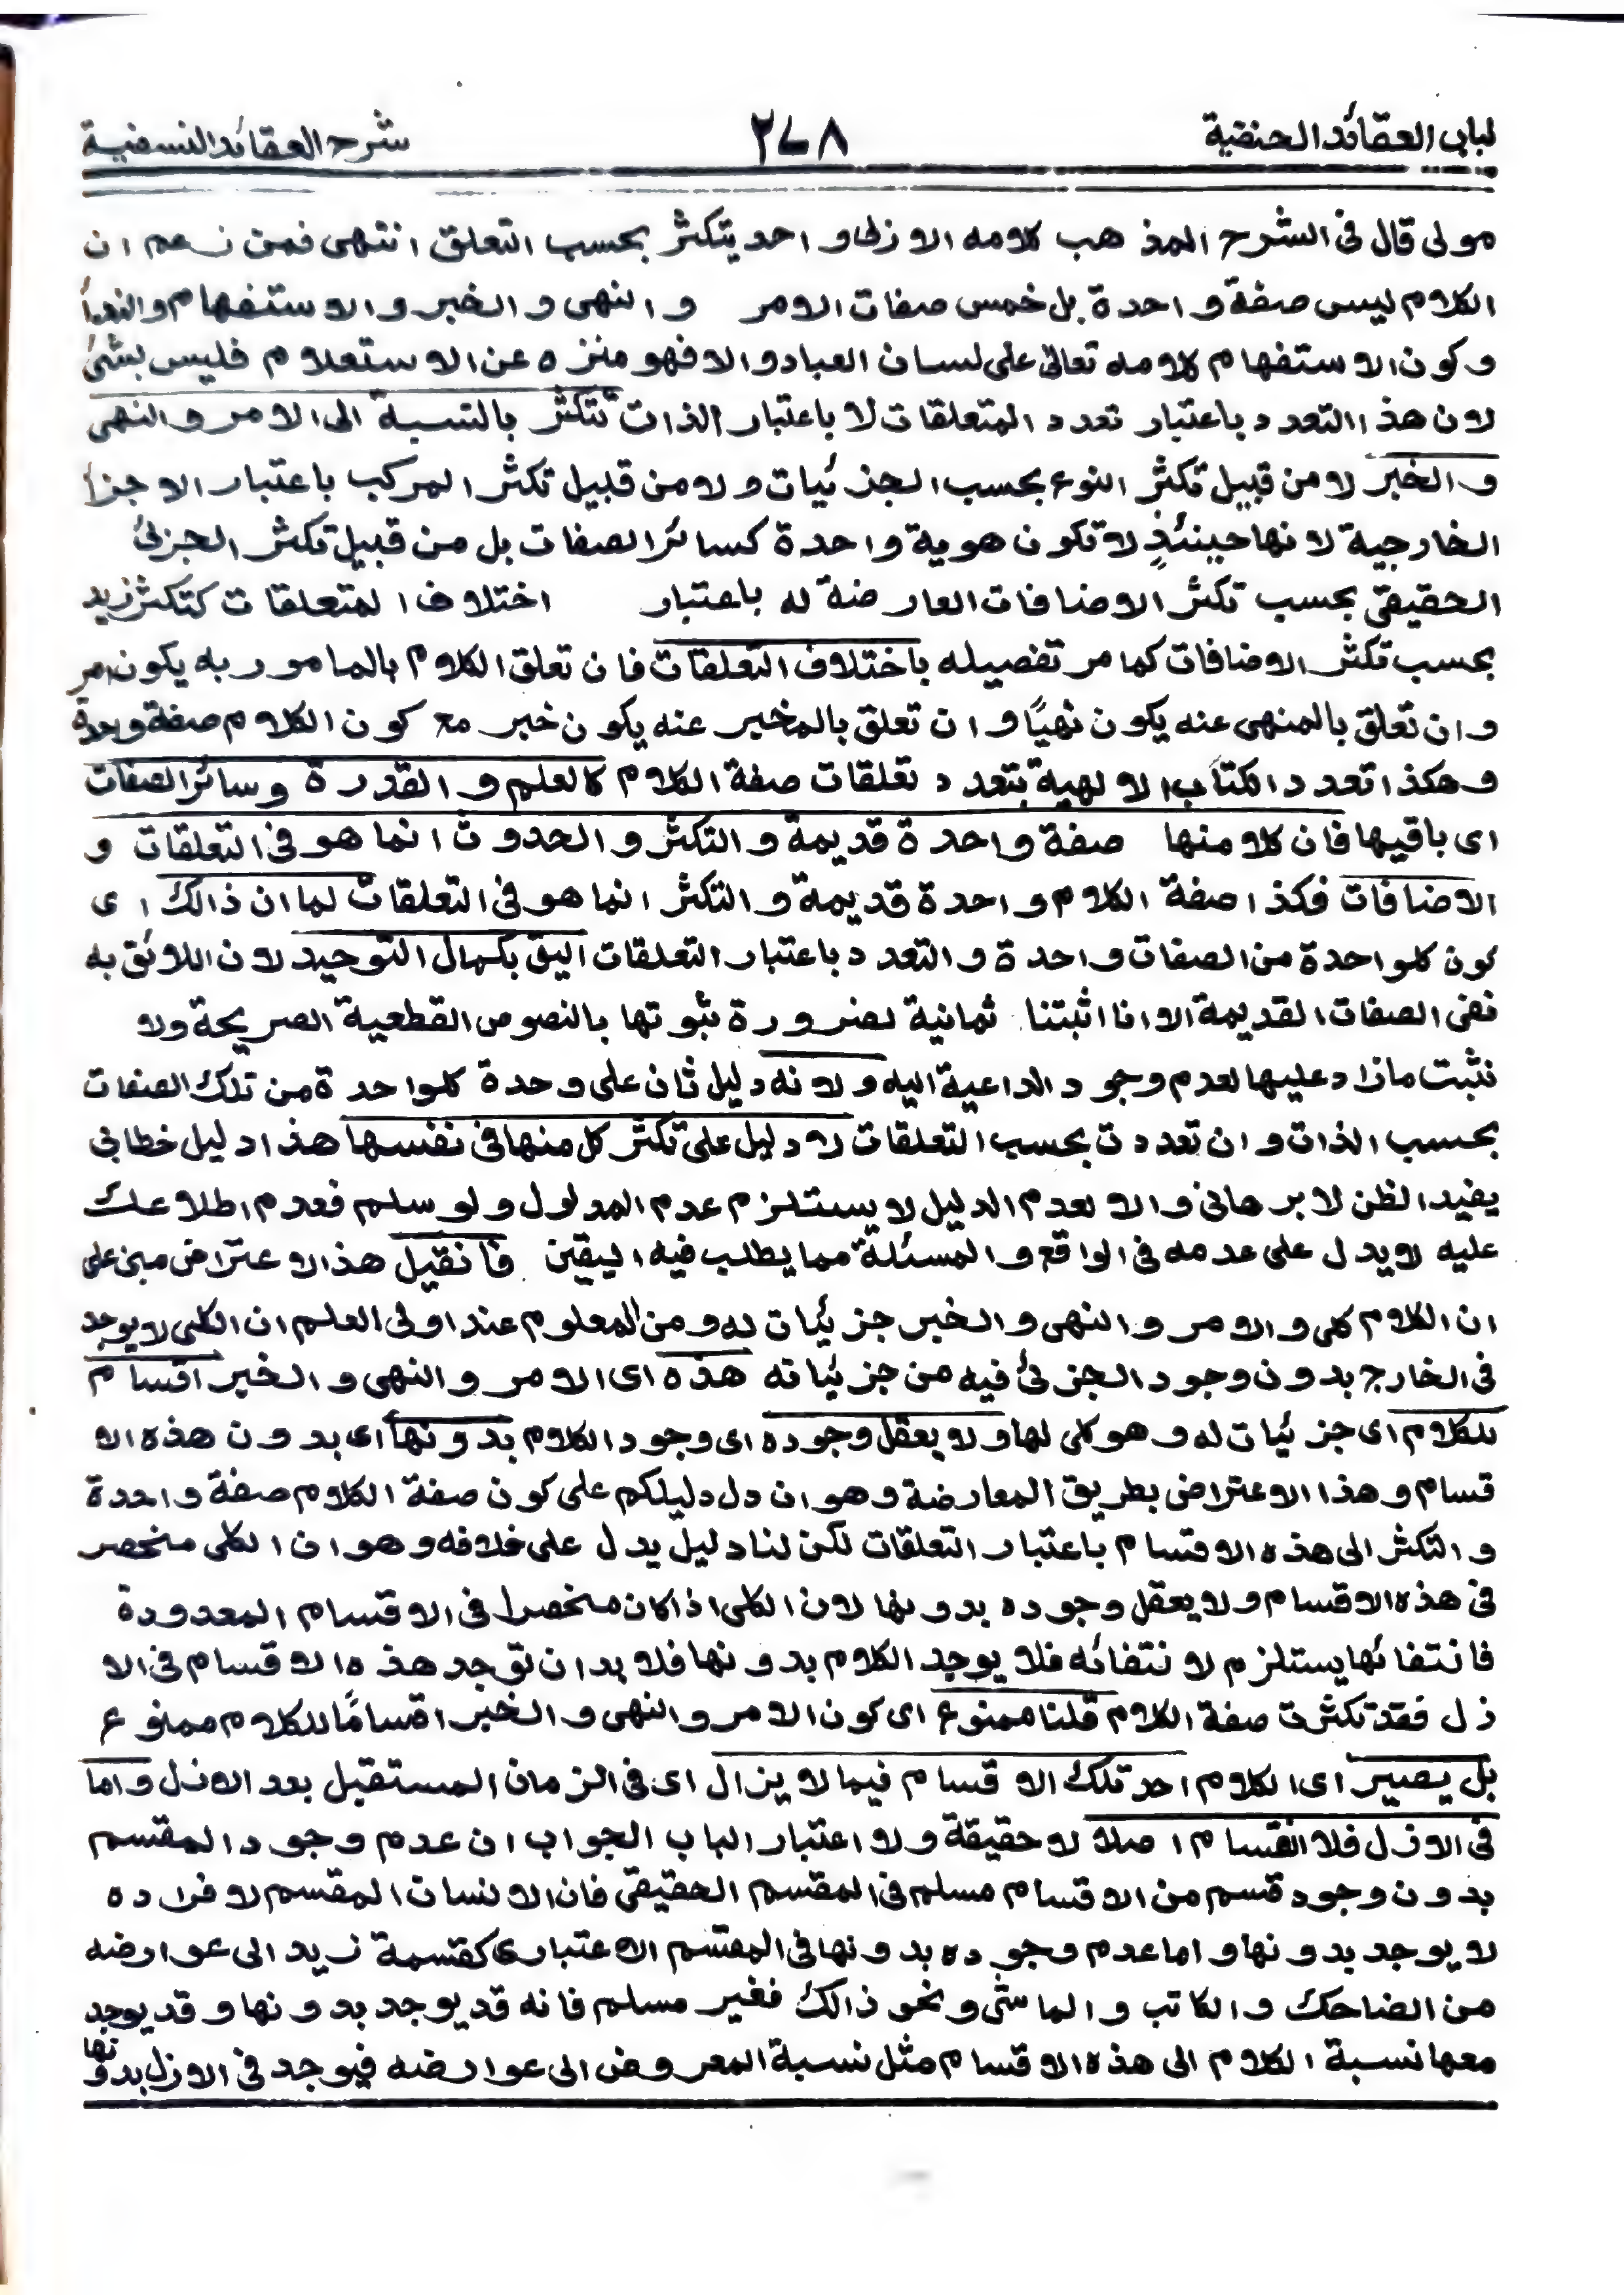 لباب العقائد الحنفية ٢٧٨ شرح العقائد النسفية
مولى قال فى الشرح المذهب كلامه الازلى واحد يتكثر بحسب التعلق انتهى فمن زعم ان
الكلام ليس صفة واحدة بل خمس صفات الامر والنهى والخبر والاستفهام والنداأ
وكون الاستفهام كلامه تعالى على لسان العباد والا فهو منزه عن الاستعلام فليس بشئ
لان هذا التعدد باعتبار تعدد المتعلقات لا باعتبار الذات تتكثر بالنسبة الى الامر والنهى
والخبر لا من قبيل تكثر النوع بحسب الجزئيات ولا من قبيل تكثر المركب باعتبار الاجزا
الخارجية لانها حينئذٍ لا تكون هوية واحدة كسائر الصفات بل من قبيل تكثر الجزئ
الحقيقى بحسب تكثر الاضافات العارضة له باعتبار اختلاف المتعلقات كتكثر زيد
بحسب تكثر الاضافات كما مر تفصيله باختلاف التعلقات فان تعلق الكلام بالمامور به يكون امر
وان تعلق بالمنهى عنه يكون نهيًا وان تعلق بالمخبر عنه يكون خبر مع كون الكلام صفة وحدة
وهكذا تعدد الكتاب الالهية بتعدد تعلقات صفة الكلام كالعلم والقدرة وسائر الصفات
اى باقيها فان كلا منها صفة واحدة قديمة والتكثر والحدوث انما هو فى التعلقات و
الاضافات فكذا صفة الكلام واحدة قديمة والتكثر انما هو فى التعلقات لما ان ذالك اى
كون كلواحدة من الصفات واحدة والتعدد باعتبار التعلقات اليق بكمال التوحيد لان اللائق به
نفى الصفات القديمة الا انا اثبتنا ثمانية لضرورة ثبوتها بالنصوص القطعية الصريحة ولا
نثبت مازاد عليها لعدم وجود الداعية اليه ولانه دليل ثان على وحدة كلواحدة من تلك الصفات
بحسب الذات وان تعددت بحسب التعلقات لا دليل على تكثر كل منها فى نفسها هذا دليل خطابى
يفيد الظن لا برهانى والا لعدم الدليل لا يستلزم عدم المدلول ولو سلم فعدم اطلاعك
عليه لا يدل على عدمه فى الواقع والمسئلة مما يطلب فيه اليقين فانقيل هذا الاعتراض مبنى على
ان الكلام كلى والامر والنهى والخبر جزئيات له ومن المعلوم عند اولى العلم ان الكلى لا يوجد
فى الخارج بدون وجود الجزئ فيه من جزئياته هذه اى الامر والنهى والخبر اقسام
للكلام اى جزئيات له وهو كلى لها ولا يعقل وجوده اى وجود الكلام بدونها اى بدون هذه الا
قسام وهذا الاعتراض بطريق المعارضة وهو ان دل دليلكم على كون صفة الكلام صفة واحدة
والتكثر الى هذه الاقسام باعتبار التعلقات لكن لنا دليل يدل على خلافه وهو ان الكلى منحصر
فى هذه الاقسام ولا يعقل وجوده بدونها لان الكلى اذا كان منحصرا فى الاقسام المعدودة
فانتفائها يستلزم لانتفائه فلا يوجد الكلام بدونها فلا بد ان توجد هذه الاقسام فى الا
زل فقد تكثرت صفة الكلام قلنا ممنوع اى كون الامر والنهى والخبر اقسامًا للكلام ممنوع
بل يصير اى الكلام احد تلك الاقسام فيما لا يزال اى فى الزمان المستقبل بعد الازل واما
فى الازل فلا انقسام اصلا لا حقيقة ولا اعتبار الباب الجواب ان عدم وجود المقسم
بدون وجود قسم من الاقسام مسلم فى المقسم الحقيقى فان الانسان المقسم لافراده
لا يوجد بدونها واما عدم وجوده بدونها فى المقسم الاعتبارى كقسمة زيد الى عوارضه
من الضاحك والكاتب والماشى ونحو ذالك فغير مسلم فانه قد يوجد بدونها وقد يوجد
معها نسبة الكلام الى هذه الاقسام مثل نسبة المعروض الى عوارضه فيوجد فى الازل بدونها